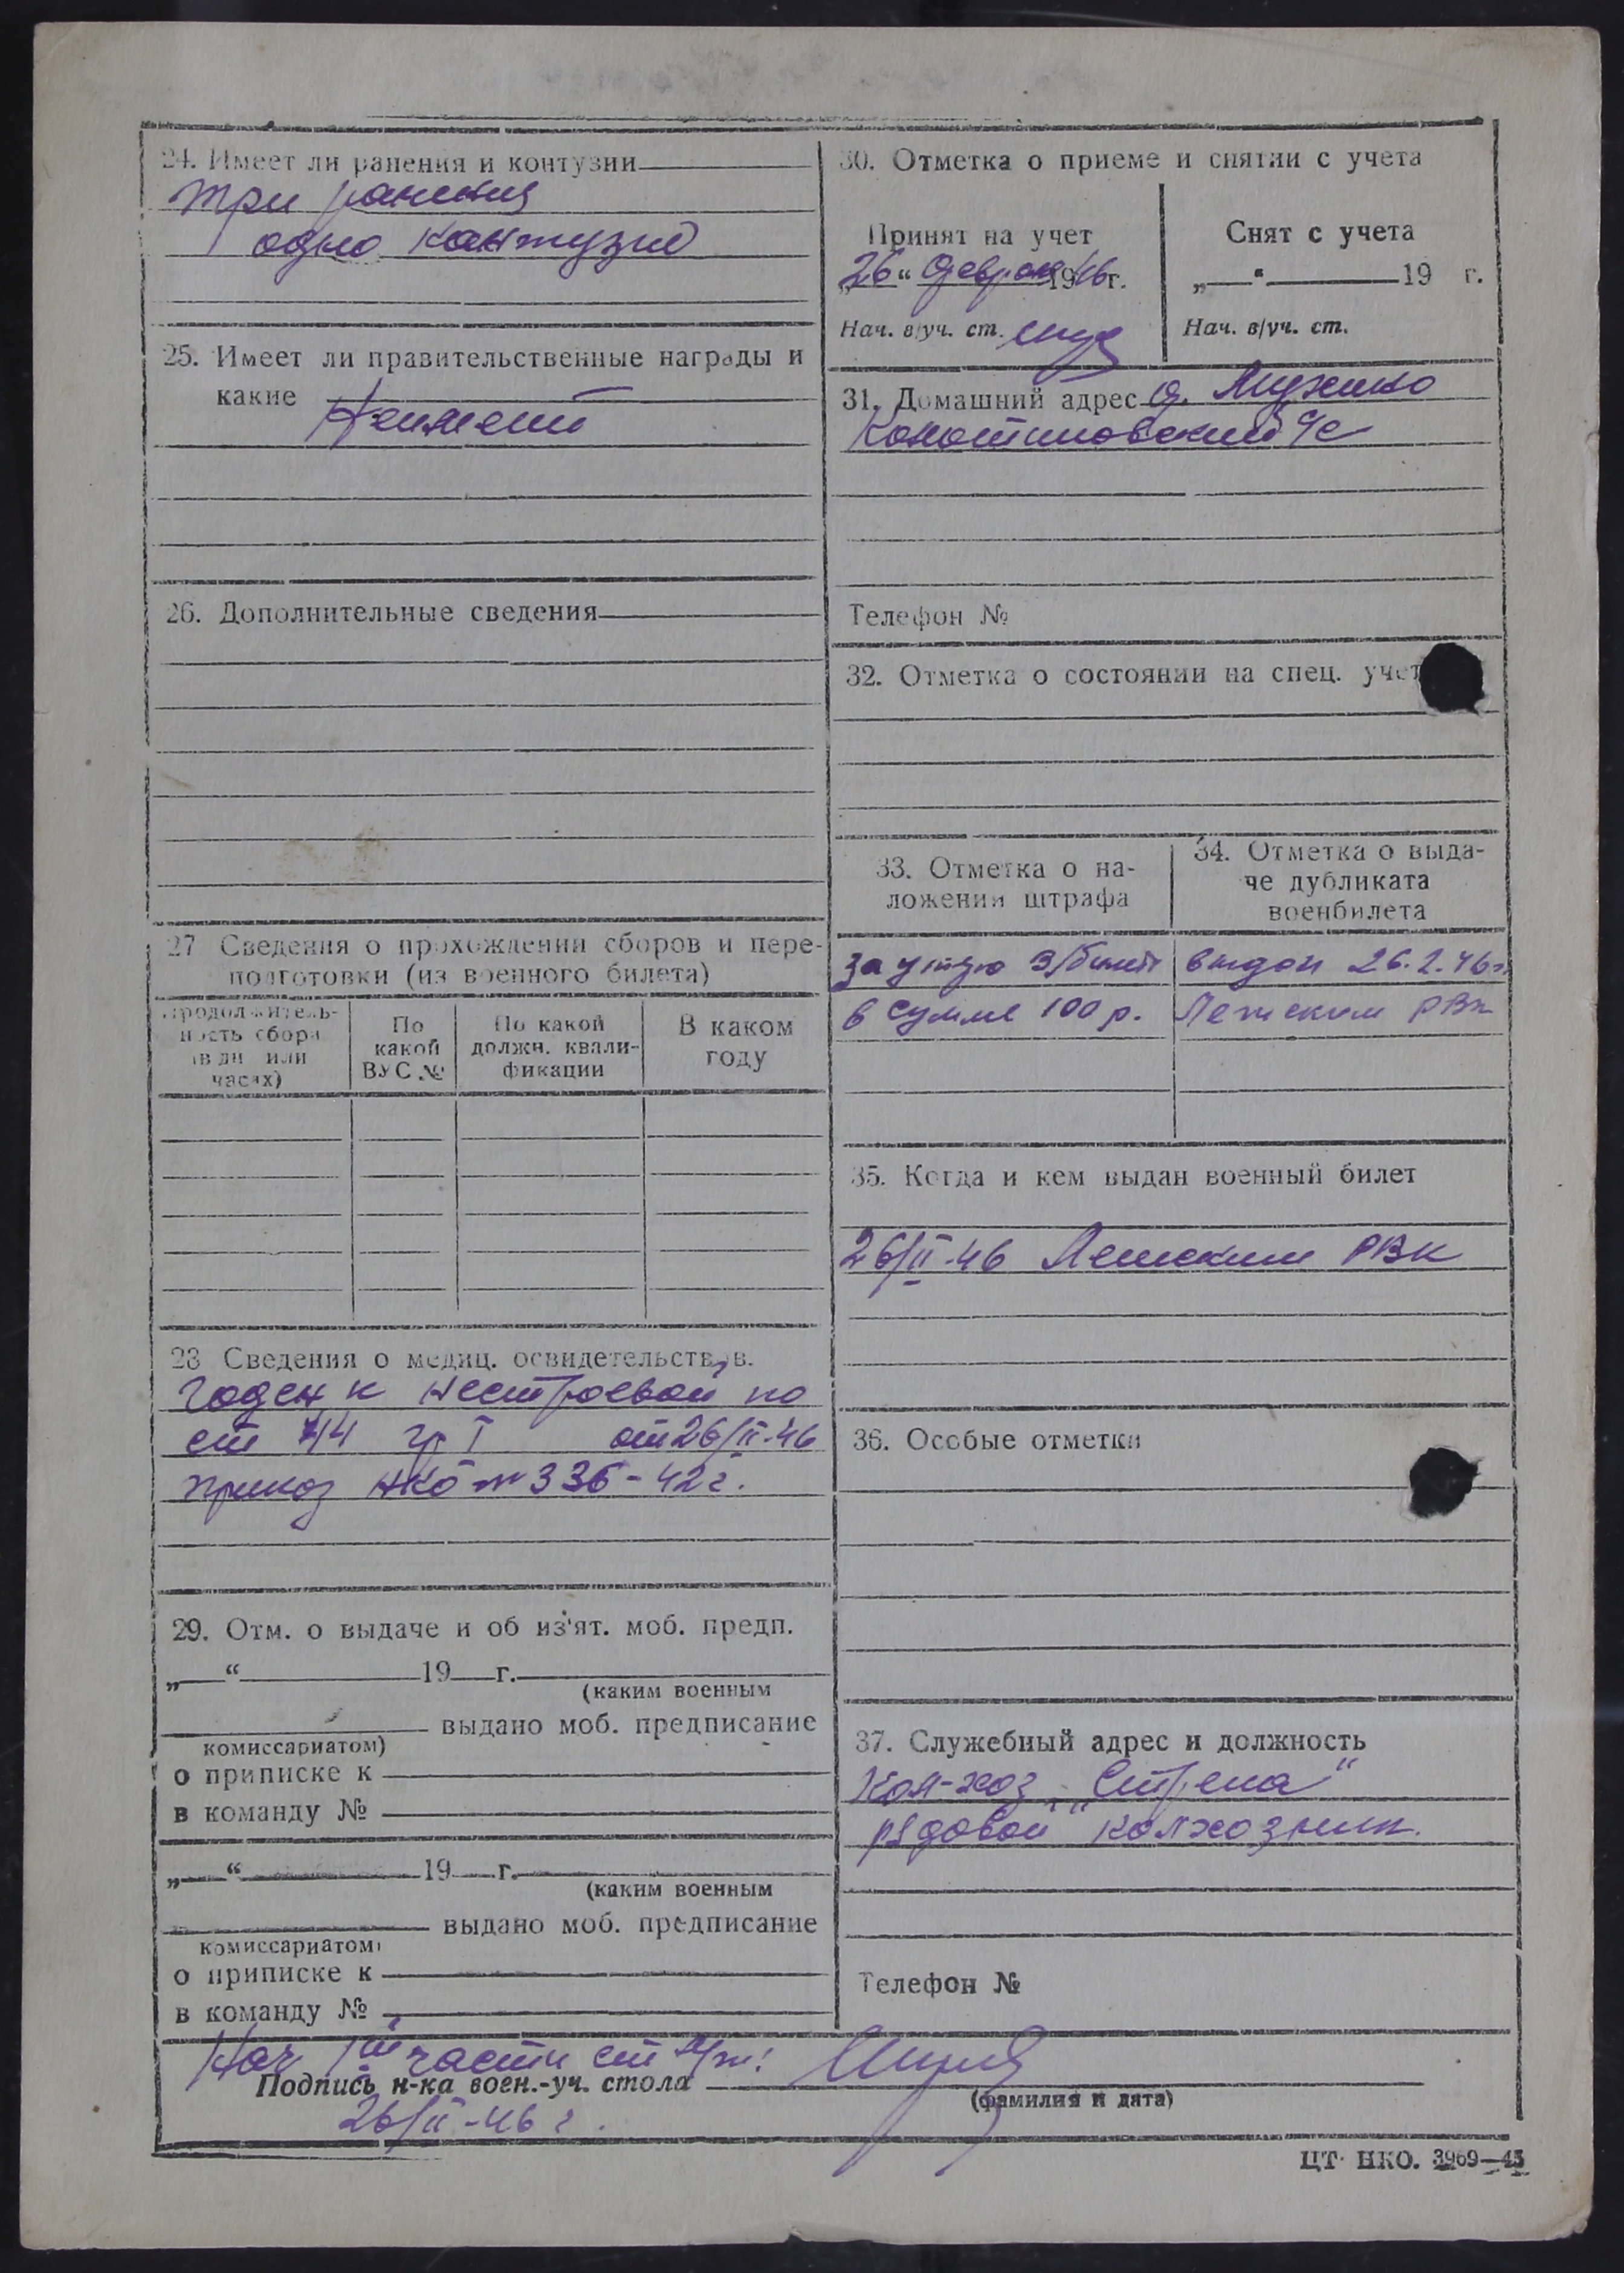 24. Имеет ли ранения и контузии
три ранения
одно кантузио
25. Имеет ли правительственные награды и
какие Неимеит
26. Дополнительные сведения
27 Сведения о прохождении сборов и пере-
подготовки (из военного билета)
Продолжитель-
ность сбора
(в дн или
часах)
По
какой
ВУС №
По какой
должн. квали-
фикации
В каком
году
28 Сведения о медиц. освидетельствов.
Годен к нестроевой по
ст 44 гр I от 26/II-46
приказ НКО № 336-42 г.
29. Отм. о выдаче и об из'ят. моб. предп.
„ “ 19 г.
(каким военным
выдано моб. предписание
комиссариатом)
о приписке к
в команду №
„ “ 19 г.
(каким военным
выдано моб. предписание
комиссариатом)
о приписке к
в команду №
30. Отметка о приеме и снятии с учета
Принят на учет
„26“ февраля 1946 г.
Нач. в/уч. ст.
Снят с учета
„ “ 19 г.
Нач. в/уч. ст.
31. Домашний адрес д.
с/с
Телефон №
32. Отметка о состоянии на спец. учет
33. Отметка о на-
ложении штрафа
за утрю в/билет
в сумме 100 р.
34. Отметка о выда-
че дубликата
военбилета
выдан 26.2.46 г.
Лежским РВК
35. Когда и кем выдан военный билет
26/II-46 Лежским РВК
36. Особые отметки
37. Служебный адрес и должность
Кол-хоз „Стрела“
рядовой колхозник.
Телефон №
Нач части ст
Подпись н-ка воен.-уч. стола
(фамилия и дата)
26/II-46 г.
ЦТ НКО. 3969—45